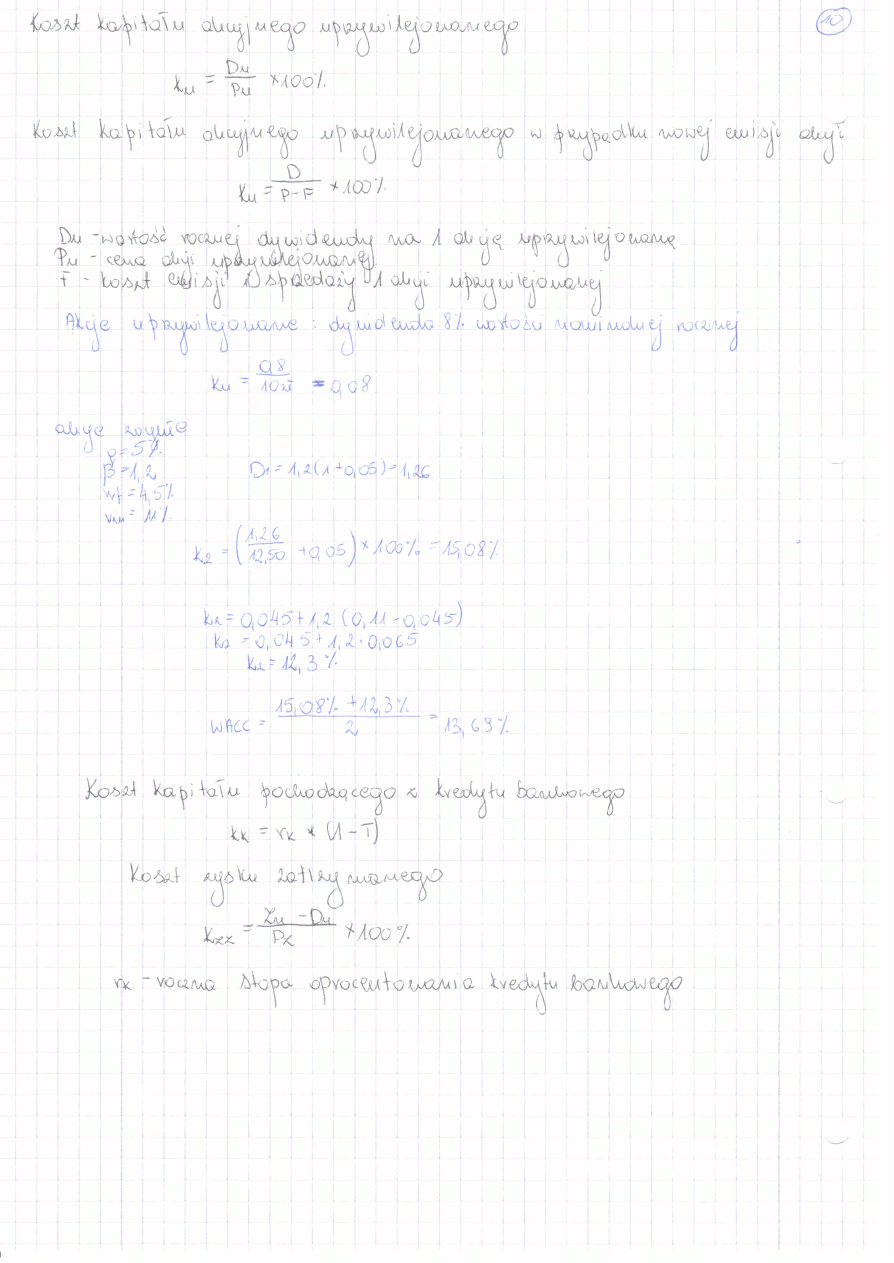 Koszt kapitału akcyjnego uprzywilejowanego
10
Ku = Du/Pu × 100%
Koszt kapitału akcyjnego uprzywilejowanego w przypadku nowej emisji akcji
Ku = D/P-F × 100%
Du - wartość rocznej dywidendy na 1 akcję uprzywilejowaną
Pu - cena akcji uprzywilejowanej
F - koszt emisji i sprzedaży 1 akcji uprzywilejowanej
Akcje uprzywilejowane : dywidenda 8% wartości nominalnej rocznej
Ku = 0,8/10zł = 0,08
akcje zwykłe
g = 5%
β = 1,2 D1 = 1,2(1+0,05) = 1,26
rf = 4,5%
rm = 11%
Kz = (1,26/12,50 + 0,05) × 100% = 15,08%
Kz = 0,045 + 1,2 (0,11 - 0,045)
Kz = 0,045 + 1,2 · 0,065
Kz = 12,3%
WACC = 15,08% + 12,3%/2 = 13,69%
Koszt kapitału pochodzącego z kredytu bankowego
Kk = rk × (1 - T)
Koszt zysku zatrzymanego
Kzz = Zu - Du/Pz × 100%
rk - roczna stopa oprocentowania kredytu bankowego